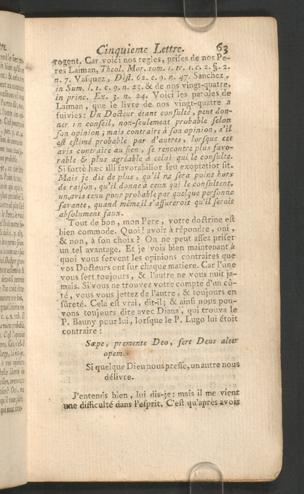 Cinquieme Lettre. 63
rogent. Car voici nos regles, prises de nos Pe-
res Laiman, Theol. Mor. tom. 1. tr. 1. c. 2. §. 2.
n. 7. Vasquez, Dist. 62. c. 9. n. 47. Sanchez,
in Sum. l. 1. c. 9. n. 23. & de nos vingt-quatre,
in princ. Ex. 3. n. 24. Voici les paroles de
Laiman, que le livre de nos vingt-quatre a
suivies: Un Docteur étant consulté, peut don-
ner un conseil, non-seulement probable selon
son opinion; mais contraire à son opinion, s'il
est estimé probable par d'autres, lorsque cet
avis contraire au sien, se rencontre plus favo-
rable & plus agréable à celui qui le consulte.
Si forte hæc illi favorabilior seu exoptatior sit.
Mais je dis de plus, qu'il ne sera point hors
de raison, qu'il donne à ceux qui le consultent,
un avis tenu pour probable par quelque personne
savante, quand même il s'assureroit qu'il seroit
absolument faux.
Tout de bon, mon Pere, votre doctrine est
bien commode. Quoi! avoir à répondre, oui,
& non, à son choix? On ne peut assez priser
un tel avantage. Et je vois bien maintenant à
quoi vous servent les opinions contraires que
vos Docteurs ont sur chaque matiere. Car l'une
vous sert toujours, & l'autre ne vous nuit ja-
mais. Si vous ne trouvez votre compte d'un cô-
té, vous vous jettez de l'autre, & toujours en
sûreté. Cela est vrai, dit-il; & ainsi nous pou-
vons toujours dire avec Diana, qui trouva le
P. Bauny pour lui, lorsque le P. Lugo lui étoit
contraire:
Sæpe, premente Deo, fert Deus alter
opem.
Si quelque Dieu nous presse, un autre nous
délivre.
J'entends bien, lui dis-je; mais il me vient
une difficulté dans l'esprit. C'est qu'après avoir